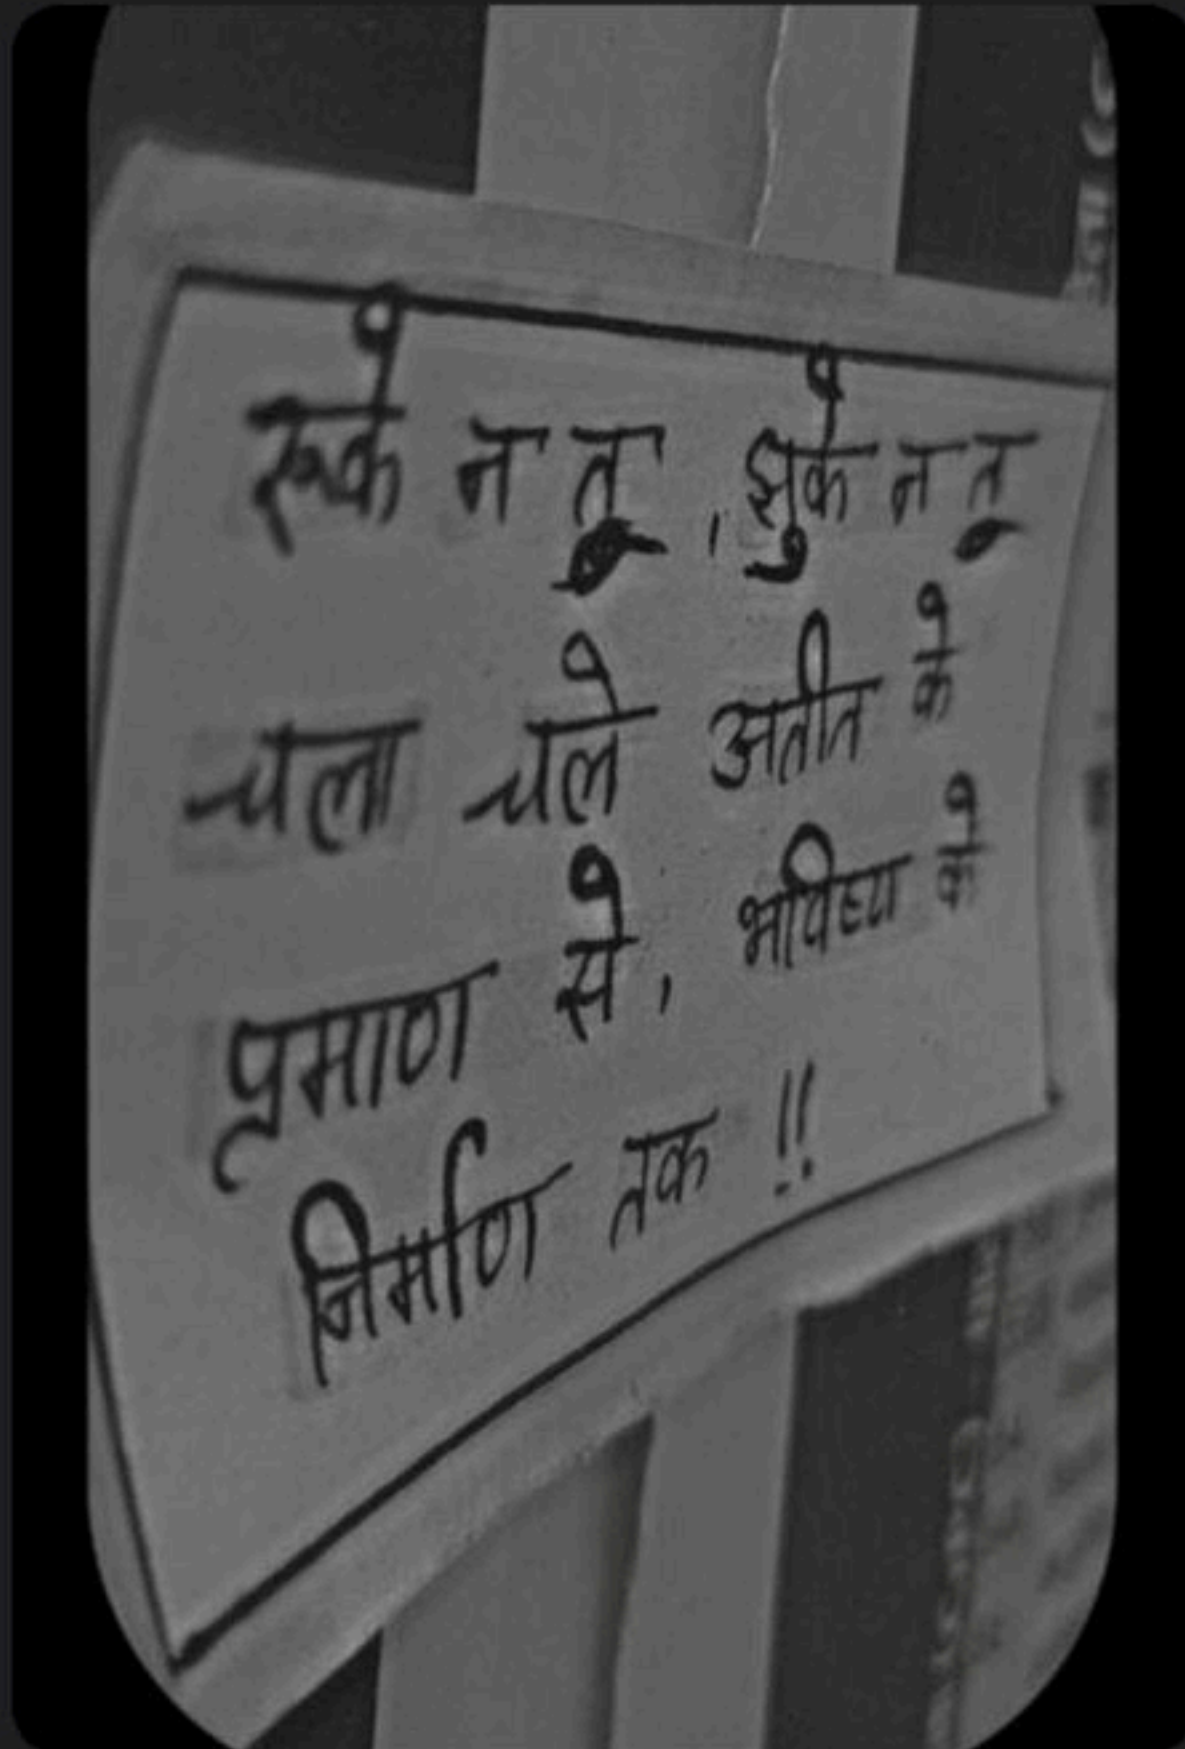 रुके न तू, झुके न तू
चला चले अतीत के
प्रमाण से, भविष्य के
निर्माण तक !!